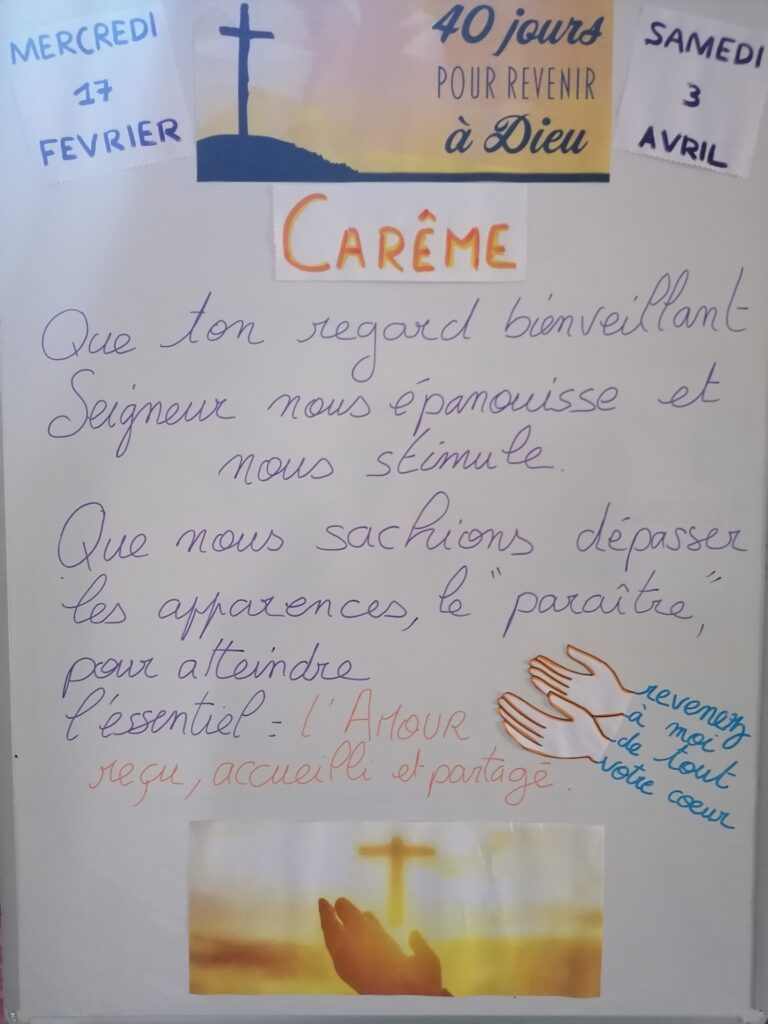 MERCREDI
17
FEVRIER
40 jours
POUR REVENIR
à Dieu
SAMEDI
3
AVRIL
CARÊME
Que ton regard bienveillant
Seigneur nous épanouisse et
nous stimule.
Que nous sachions dépasser
les apparences, le "paraître",
pour atteindre
l'essentiel = l'AMOUR
reçu, accueilli et partagé.
revenez
à moi
de tout
votre cœur